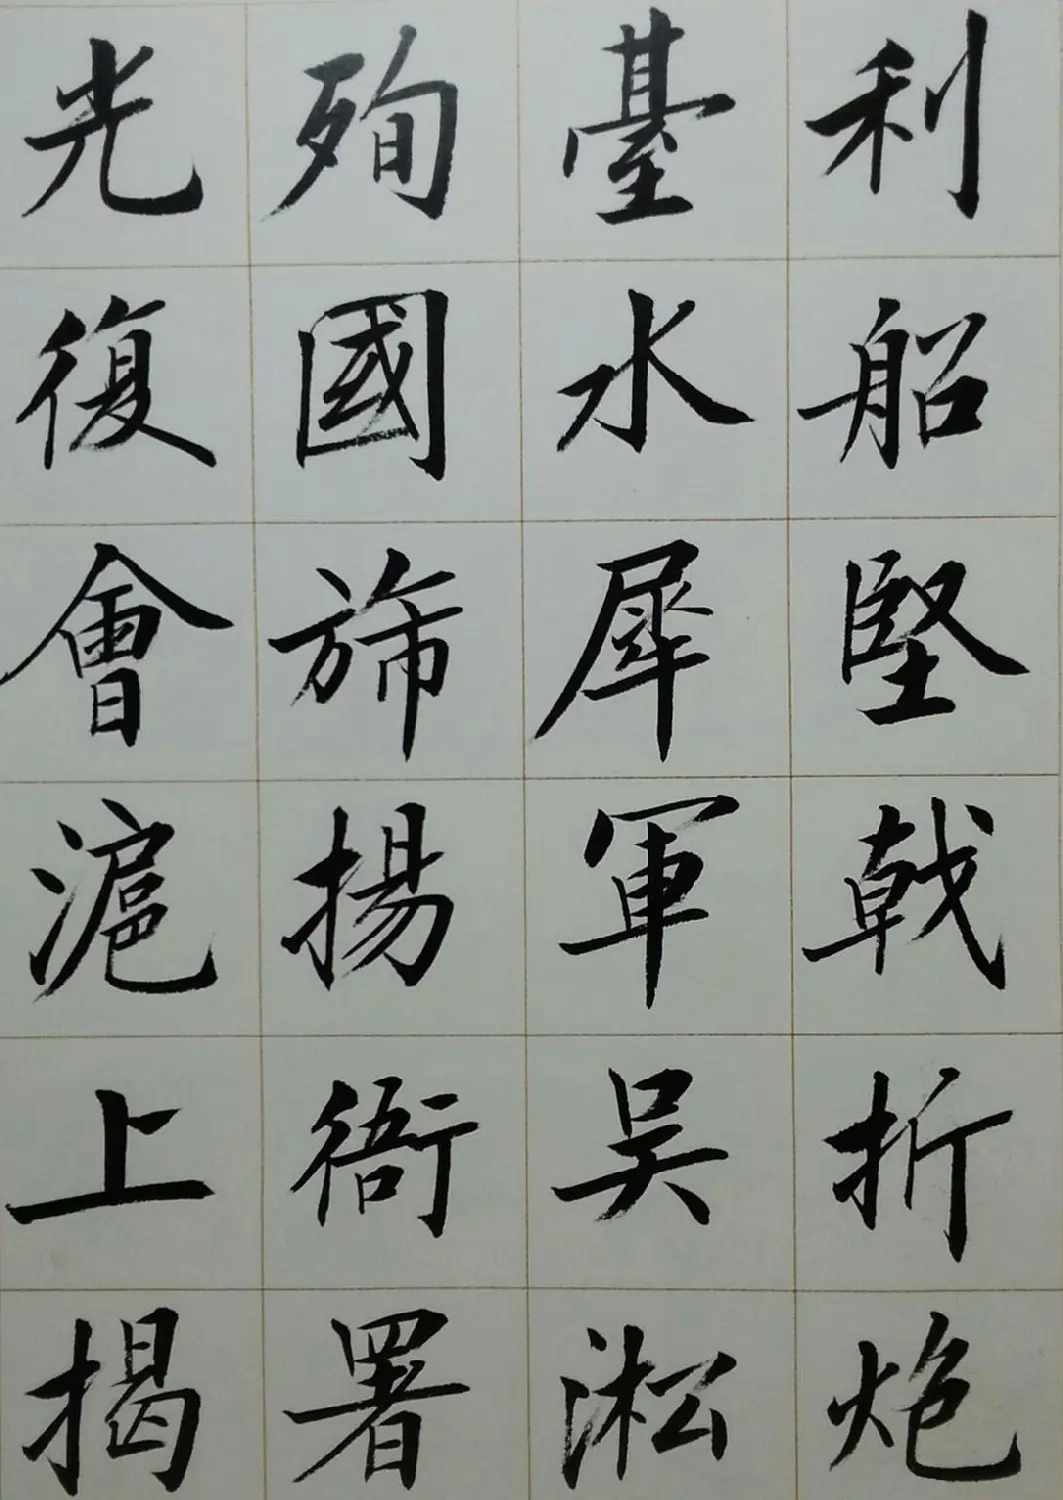 利船堅戟折炮
臺水犀軍吴淞
殉國旆揚衙署
光復會滬上揭